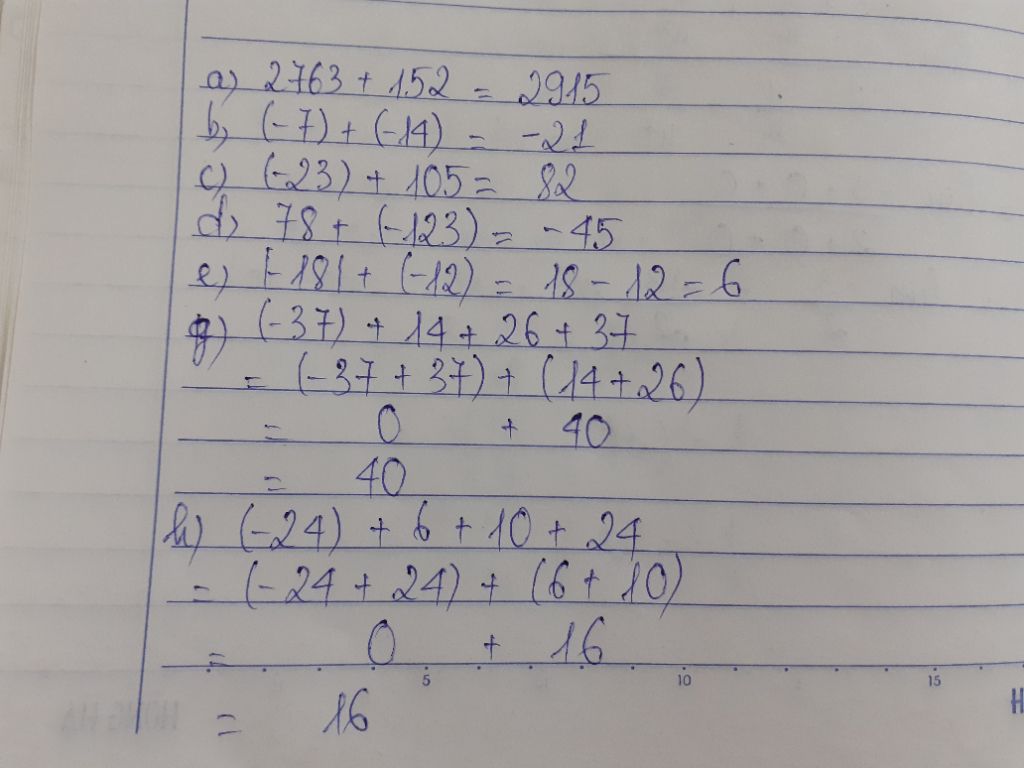 a) 2763 + 152 = 2915
b) (-7) + (-14) = -21
c) (-23) + 105 = 82
d) 78 + (-123) = -45
e) |-18| + (-12) = 18 - 12 = 6
g) (-37) + 14 + 26 + 37
= (-37 + 37) + (14 + 26)
= 0 + 40
= 40
h) (-24) + 6 + 10 + 24
= (-24 + 24) + (6 + 10)
= 0 + 16
5 10 15
= 16